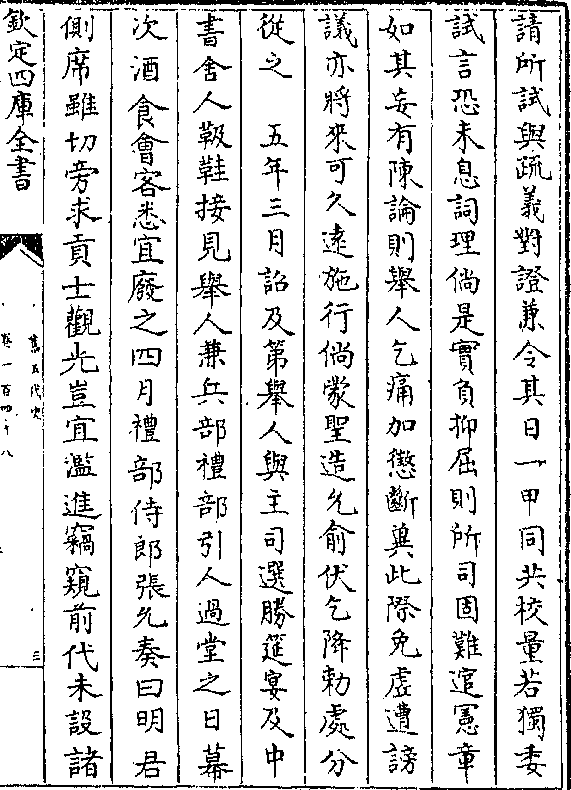 請所試與疏義對證兼令其日一甲同共校量若獨委
試言恐未息詞理倘是實負抑屈則所司固難逭憲章
如其妄有陳論則舉人乞痛加懲斷兾此際免虛遭謗
議亦將來可久遠施行倘蒙聖造允俞伏乞降勅處分
從之　五年三月詔及第舉人與主司選勝筵宴及中
書舍人靸鞋接見舉人兼兵部禮部引人過堂之日幕
次酒食會客悉宜廢之四月禮部侍郎張允奏曰明君
側席雖切旁求貢士觀光豈宜濫進竊窺前代未設諸
欽定四庫全書
舊五代史
卷一百四十八
三